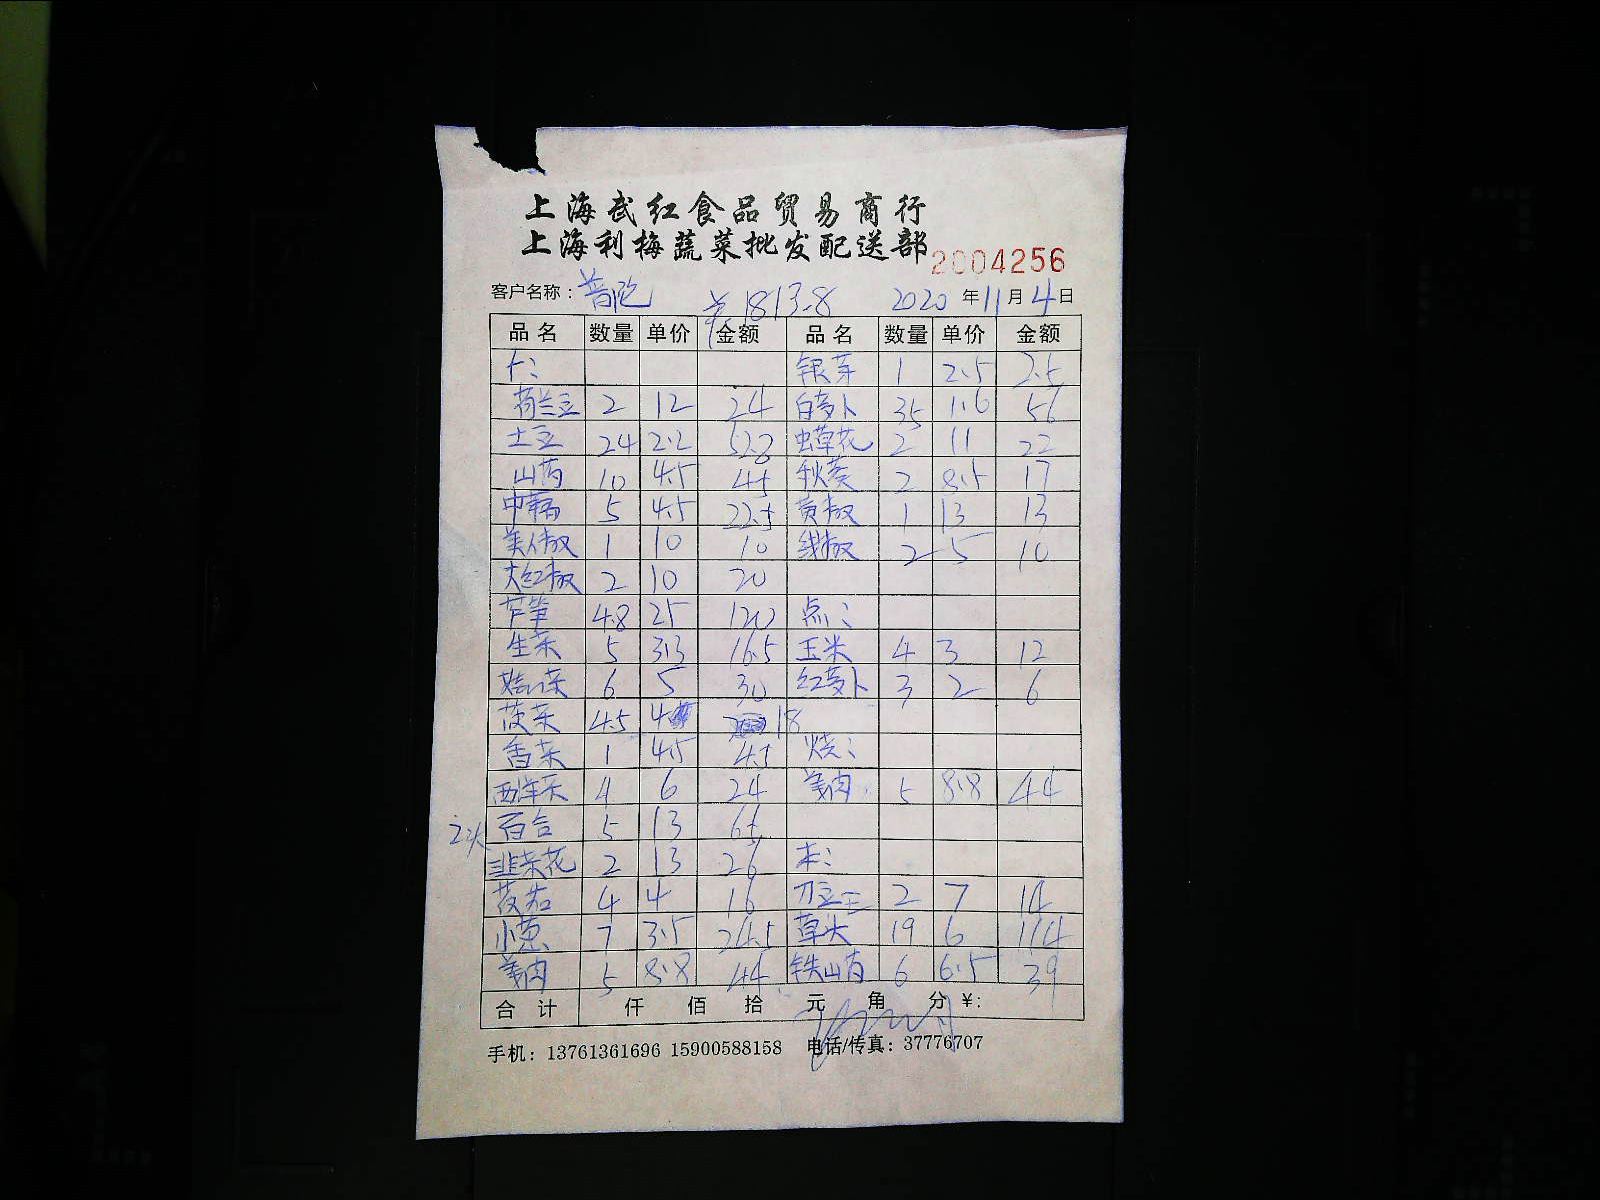 上海武红食品贸易商行
上海利梅蔬菜批发配送部
2004256
客户名称：普陀 ¥1813.8 2020年11月4日
品名 数量 单价 金额 品名 数量 单价 金额
银芽 1 2.5 2.5
荷兰豆 2 12 24 白萝卜 35 1.6 56
土豆 24 2.2 52.8 虫草花 2 11 22
山药 10 4.5 45 秋葵 2 8.5 17
中藕 5 4.5 22.5 黄椒 1 13 13
美人椒 1 10 10 线椒 2 5 10
大红椒 2 10 20
芦笋 4.8 25 120 点：
生菜 5 3.3 16.5 玉米 4 3 12
6 5 30 红萝卜 3 2 6
菠菜 4.5 4 18
香菜 1 4.5 4.5 烧：
西洋芹 4 6 24 姜肉 5 8.8 44
百合 5 13 65
韭菜花 2 13 26 本：
4 4 16 刀豆 2 7 14
小葱 7 3.5 24.5 草头 19 6 114
姜肉 5 8.8 44 铁山药 6 6.5 39
合计 仟 佰 拾 元 角 分 ¥:
手机：13761361696 15900588158 电话/传真：37776707